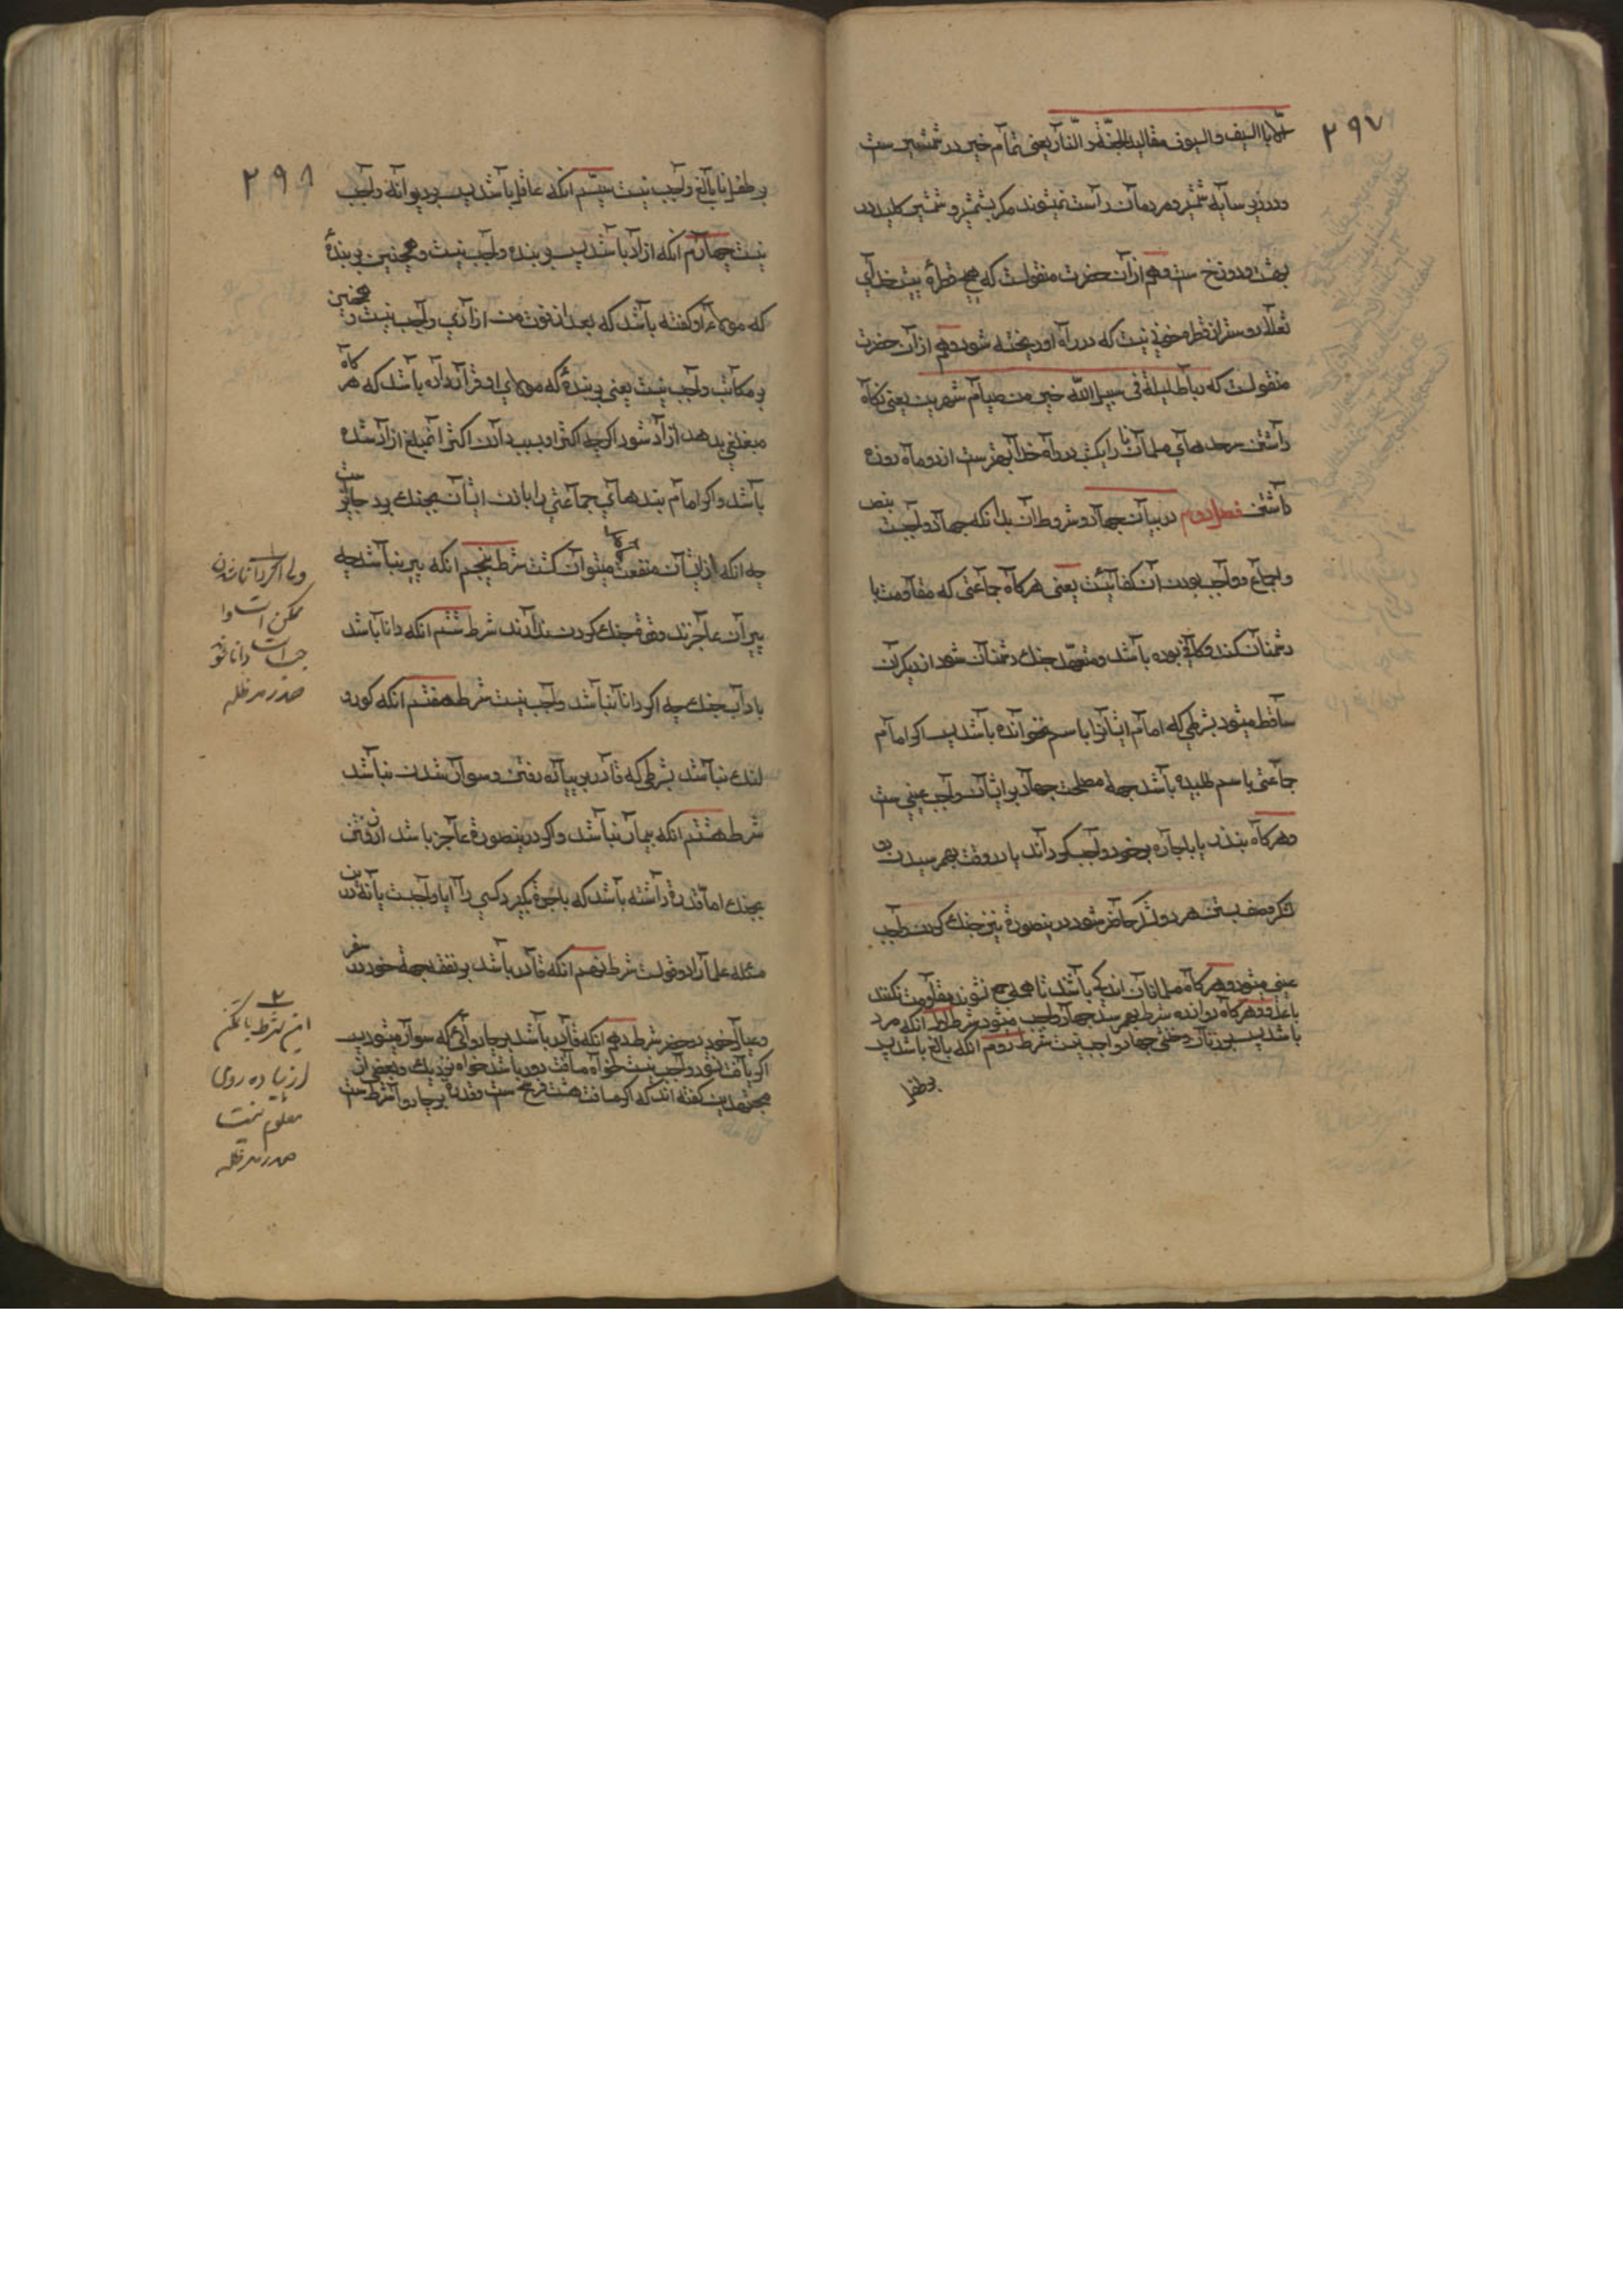 ۲۹۷
الا بالسیف والسیوف مقالید الجنة و النار یعنی تمام خیر در شمشیر ست
و در زیر سایه شمشیر و مردمان راست نمیشوند مکر بشمشیر و شمشیر کلید در
بهشت و دوزخ ست و هم از آن حضرت منقولست که هیچ قطرهٔ نیست خدای
تعالا دوستر از قطره خونی نیست که در راه او ریخته شود و هم از آن حضرت
منقولست که رباط لیلة فی سبیل الله خیر من صیام شهر یعنی نکاه
داشتن سرحدهای مسلمانان را یکشب در راه خدا بهترست از دو ماه روزه
داشتن فصل دوم در بیان جهاد و شروط آن بدانکه جهاد واجبست بنص
و اجماع و واجب بودن آن کفائیست یعنی هرکاه جماعتی که مقاومت با
دشمنان کنند و کافی بوده باشد و متعهد جنك دشمنان شود از دیکران
ساقط میشود بشرطی که امام ایشانرا باسم نخوانده باشد پس اکر امام
جماعتی باسم طلبیده باشد جهة مصلحت جهاد بر ایشان واجب عینی ست
و هرکاه بنذر یا باجاره بر خود واجب کرداند یا در وقت بهم رسیدن دو
لشکر و صف بستن هر دو لشکر حاضر شود درینصورة نیز جنك کردن واجب
عینی میشود و هرکاه مسلمانان اندکی باشند تا همه جمع نشوند مقاومت نکنند
باعدو و هرکاه دوازده شرط بهم رسد جهاد واجب میشود شرط اول انکه مرد
باشد پس بر زنان و خنثی جهاد واجب نیست شرط دوم انکه بالغ باشد پس
بر طفل
۲۹۸
بر طفل نابالغ واجب نیست سیّم انکه عاقل باشد پس بر دیوانه واجب
نیست چهارم انکه ازاد باشد پس بر بنده واجب نیست و همچنین بر بندهٔ
که مولای او کفته باشد که بعد از فوت من ازادی واجب نیست و همچنین
بر مکاتب واجب نیست یعنی بر بندهٔ که مولای او قرار داده باشد که هر کاه
مبلغی بدهد ازاد شود اکرچه اکثر او بسبب دادن اکثر انمبلغ ازاد شده
باشد و اکر امام بندهای جماعتی را باذن ایشان بجنك برد جایز ست
چه انکه از ایشان منفعت میتوان کشت شرط پنجم انکه پیر نباشد چه
پیران عاجزند و قوة جنك کردن ندارند شرط ششم انکه دانا باشد
باداب جنك چه اکر دانا نباشد واجب نیست شرط هفتم انکه کور و
لنك نباشد بشرطی که قادر بر پیاده رفتن و سوار شدن نباشد
شرط هشتم انکه بیمار نباشد و اکر درینصورة عاجز باشد از رفتن
بجنك اما قدرة داشته باشد که باجرة بکیرد کسی را آیا واجبست یا نه درین
مسئله علما را دو قولست شرط نهم انکه قادر باشد بر نفقه جهة خود در سفر
و عیال خود در حضر شرط دهم انکه قادر باشد بر چاروائی که سوار میشود پس
اکر یافت نشود واجب نیست خواه مسافت دور باشد خواه نزدیك و بعضی از
مجتهدین کفته اند که اکر مسافت هشت فرسخ ست وقدرة بر چاروا شرط ست
ولی اکر دانا شدن
ممکن است او را
دانا شود
صدر مد ظله
۲
این شرط با تمکن
از پیاده روی
معلوم نیست
صدر مد ظله